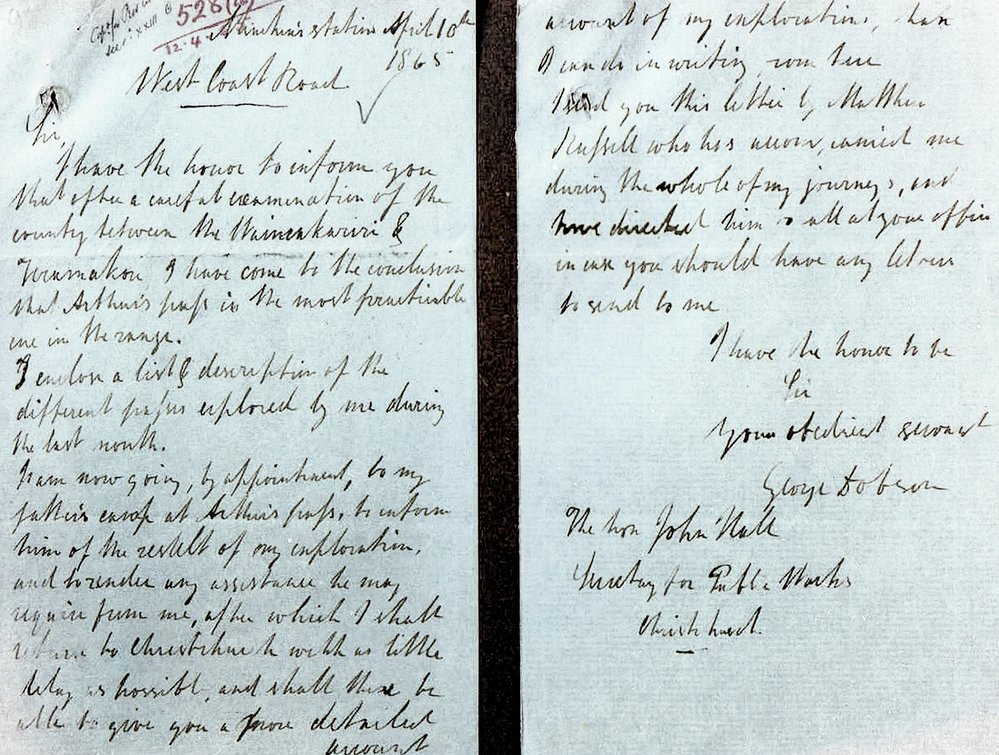 528
12.4.
Minchin's station April 10th
1865
West Coast Road
Sir,
I have the honor to inform you
that after a careful examination of the
country between the Waimakariri &
Teramakau I have come to the conclusion
that Arthur's pass is the most practicable
one in the range.
I enclose a list & description of the
different passes explored by me during
the last month.
I am now going, by appointment, to my
father's camp at Arthur's pass, to inform
him of the result of my exploration,
and to render any assistance he may
require from me, after which I shall
return to Christchurch with as little
delay as possible, and shall then be
able to give you a more detailed
account
account of my explorations, than
I can do in writing from here
I send you this letter by Matthew
Russell who has accompanied me
during the whole of my journeys, and
have directed him to call at your office
in case you should have any letters
to send to me
I have the honor to be
Sir
Your obedient servant
George Dobson
The hon John Hall
Secretary for Public Works
Christchurch